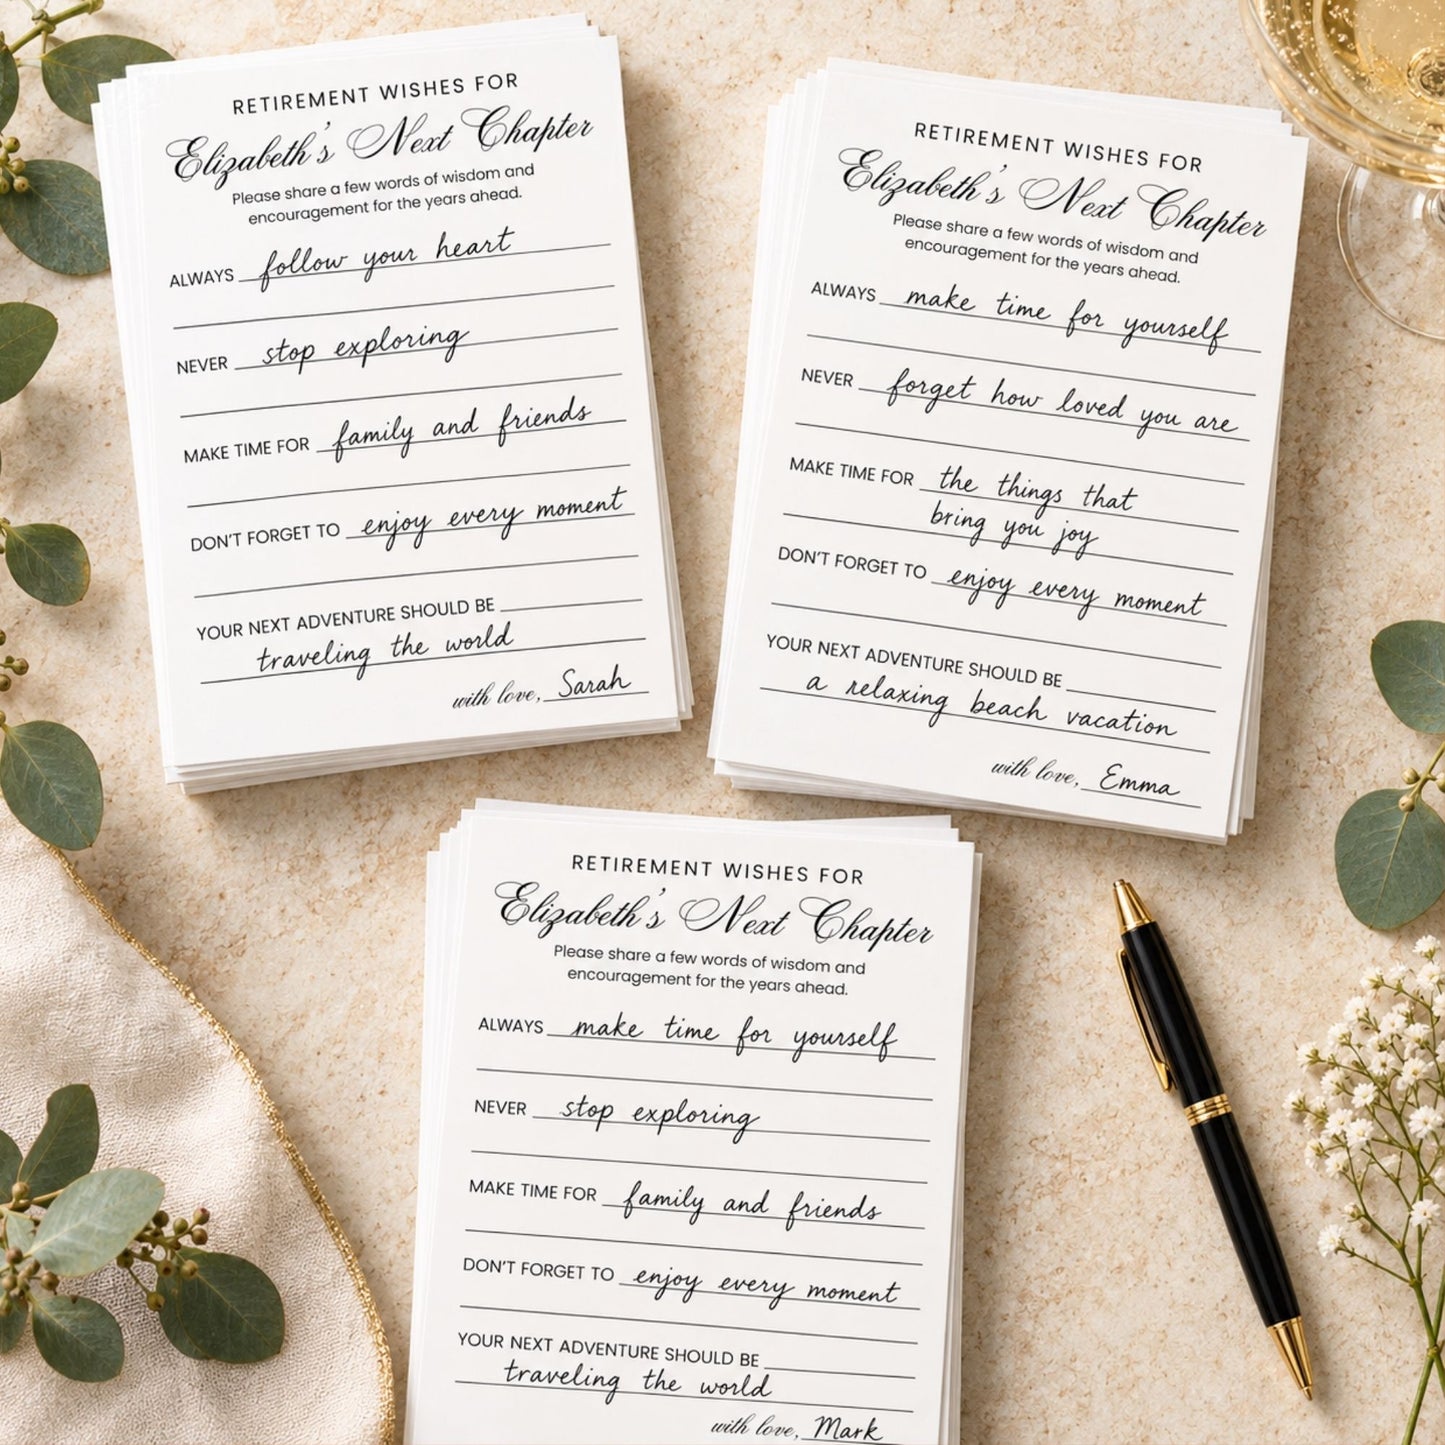 RETIREMENT WISHES FOR
Elizabeth's Next Chapter
Please share a few words of wisdom and
encouragement for the years ahead.
ALWAYS follow your heart
NEVER stop exploring
MAKE TIME FOR family and friends
DON'T FORGET TO enjoy every moment
YOUR NEXT ADVENTURE SHOULD BE
traveling the world
with love, Sarah
RETIREMENT WISHES FOR
Elizabeth's Next Chapter
Please share a few words of wisdom and
encouragement for the years ahead.
ALWAYS make time for yourself
NEVER forget how loved you are
MAKE TIME FOR the things that
bring you joy
DON'T FORGET TO enjoy every moment
YOUR NEXT ADVENTURE SHOULD BE
a relaxing beach vacation
with love, Emma
RETIREMENT WISHES FOR
Elizabeth's Next Chapter
Please share a few words of wisdom and
encouragement for the years ahead.
ALWAYS make time for yourself
NEVER stop exploring
MAKE TIME FOR family and friends
DON'T FORGET TO enjoy every moment
YOUR NEXT ADVENTURE SHOULD BE
traveling the world
with love, Mark